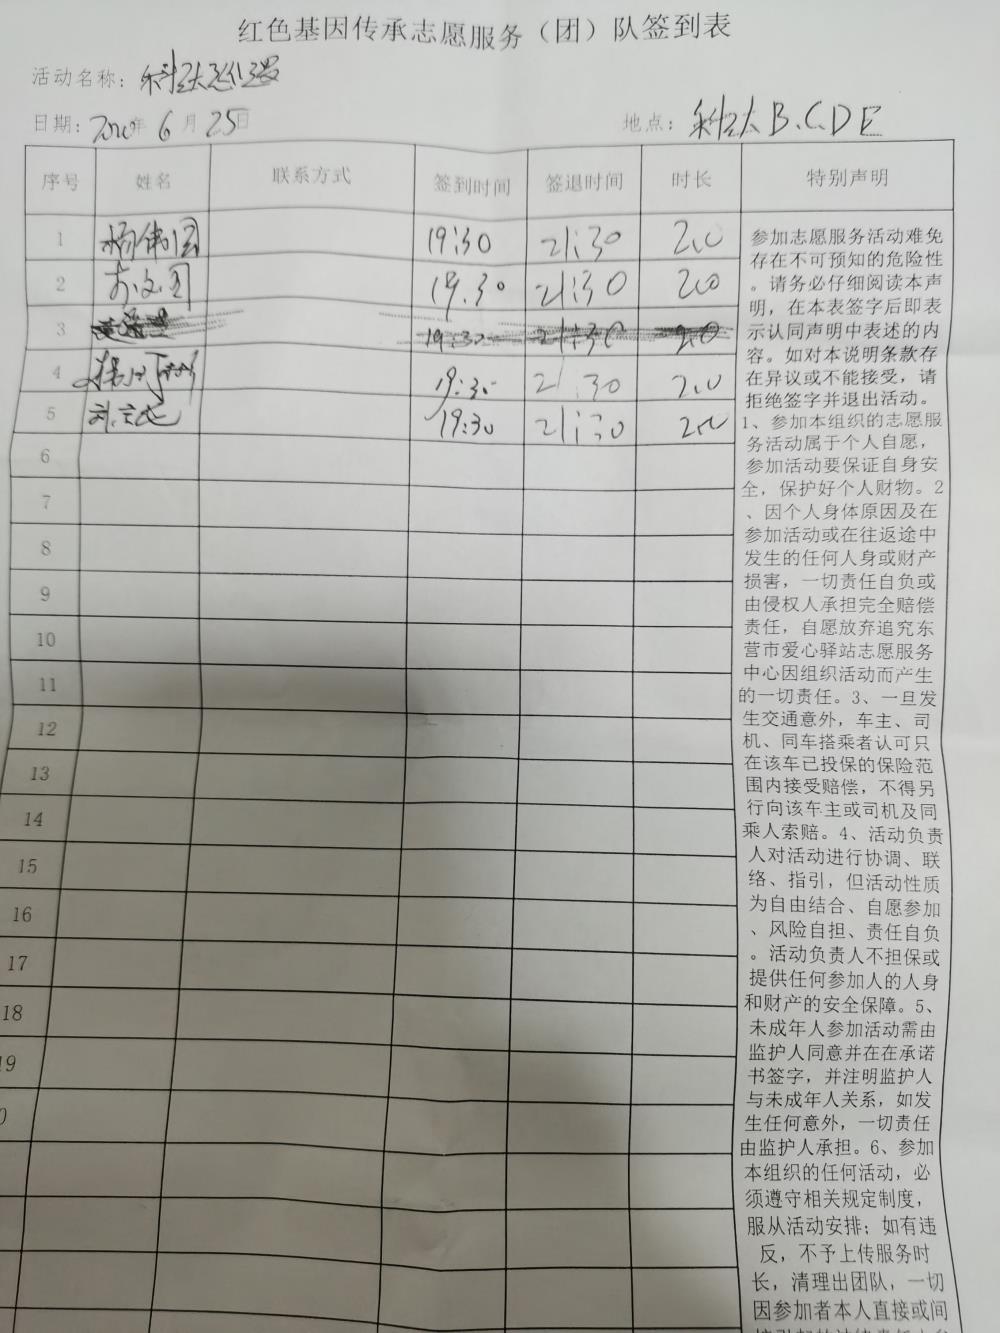 红色基因传承志愿服务（团）队签到表
活动名称：科达巡逻
日期：2020年 6月 25日
地点：科达 B.C.D E
序号 姓名 联系方式 签到时间 签退时间 时长 特别声明
1 杨伟国 19:30 21:30 2.0
2 19:30 21:30 2.0
3 19:30 21:30 2.0
4 19:30 21:30 2.0
5 19:30 21:30 2.0
6
7
8
9
10
11
12
13
14
15
16
17
18
19
0
参加志愿服务活动难免
存在不可预知的危险性
。请务必仔细阅读本声
明，在本表签字后即表
示认同声明中表述的内
容。如对本说明条款存
在异议或不能接受，请
拒绝签字并退出活动。
1、参加本组织的志愿服
务活动属于个人自愿，
参加活动要保证自身安
全，保护好个人财物。2
、因个人身体原因及在
参加活动或在往返途中
发生的任何人身或财产
损害，一切责任自负或
由侵权人承担完全赔偿
责任，自愿放弃追究东
营市爱心驿站志愿服务
中心因组织活动而产生
的一切责任。3、一旦发
生交通意外，车主、司
机、同车搭乘者认可只
在该车已投保的保险范
围内接受赔偿，不得另
行向该车主或司机及同
乘人索赔。4、活动负责
人对活动进行协调、联
络、指引，但活动性质
为自由结合、自愿参加
、风险自担、责任自负
。活动负责人不担保或
提供任何参加人的人身
和财产的安全保障。5、
未成年人参加活动需由
监护人同意并在在承诺
书签字，并注明监护人
与未成年人关系，如发
生任何意外，一切责任
由监护人承担。6、参加
本组织的任何活动，必
须遵守相关规定制度，
服从活动安排；如有违
反，不予上传服务时
长，清理出团队，一切
因参加者本人直接或间